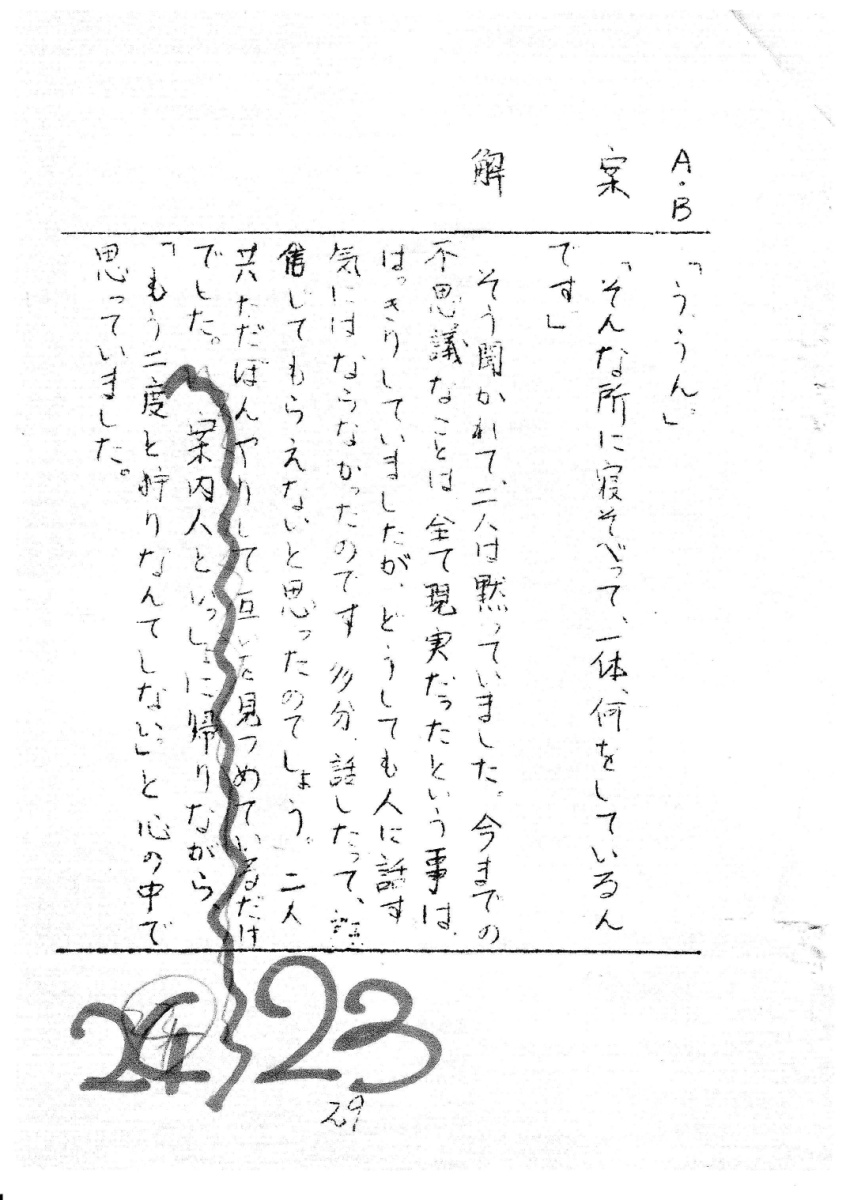 A・B「ううん。」
案「そんな所に寝そべって、一体、何をしているん
です」
解　そう聞かれて、二人は黙っていました。今までの
不思議なことは全て現実だったという事は、
はっきりしていましたが、どうしても人に話す
気にはならなかったのです 多分、話したって、
信じてもらえないと思ったのでしょう。二人
共ただぼんやりして互いを見つめているだけ
でした。　案内人といっしょに帰りながら、
「もう二度と狩りなんてしない」と心の中で
思っていました。
24 23
29